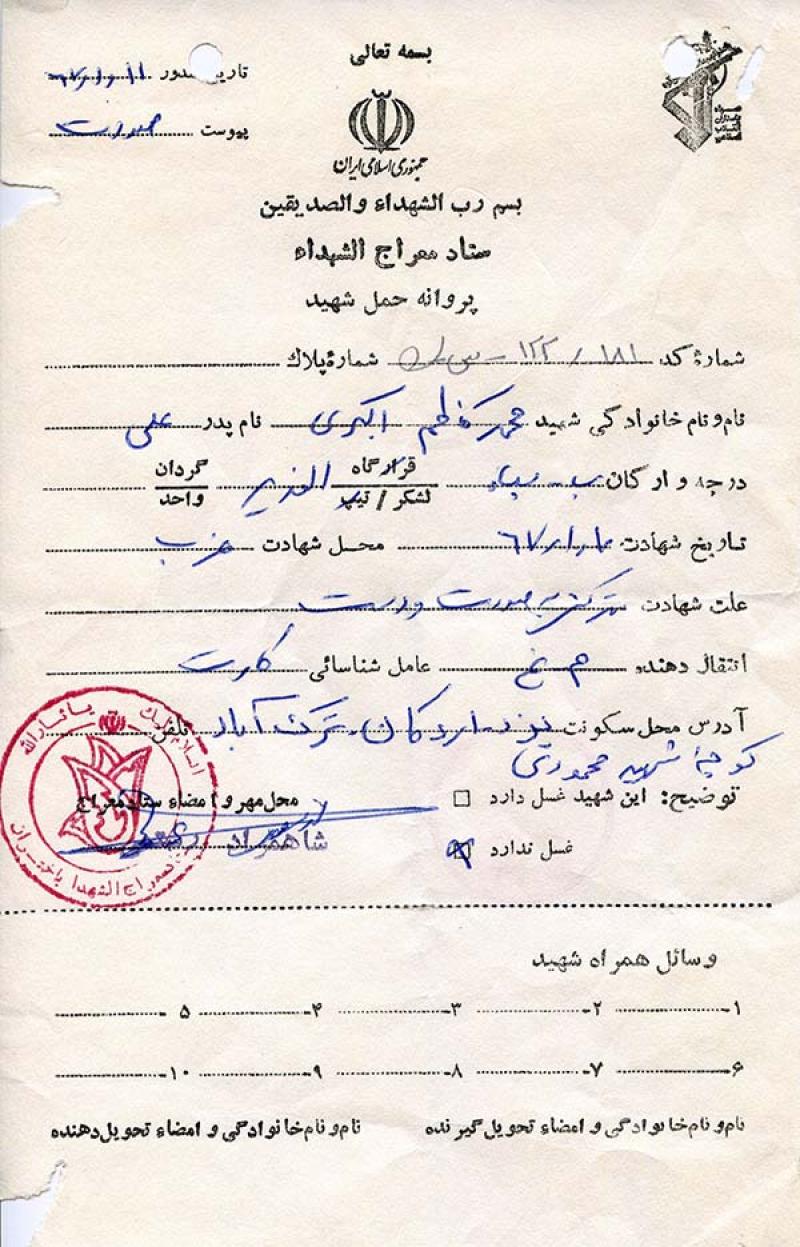 بسمه تعالی
تاریخ صدور
پیوست
جمهوری اسلامی ایران
بسم رب الشهداء والصدیقین
ستاد معراج الشهداء
پروانه حمل شهید
شماره کد ۱۸۱ / ۱۲۲ شماره پلاک
نام و نام خانوادگی شهید محمد کاظم اکبری نام پدر علی
درجه و ارگان ب - سپاه قرارگاه لشکر / تیپ الغدیر گردان واحد
تاریخ شهادت محل شهادت
علت شهادت ترکش به صورت و دست
انتقال دهنده عامل شناسائی کارت
آدرس محل سکونت یزد - اردکان - ترک آباد تلفن
کوچهٔ شهید محمودی
توضیح: این شهید غسل دارد
محل مهر و امضاء ستاد معراج
غسل ندارد
یا ثارالله
معراج الشهدا باختران
وسائل همراه شهید
۱- ۲- ۳- ۴- ۵-
۶- ۷- ۸- ۹- ۱۰-
نام و نام خانوادگی و امضاء تحویل گیرنده نام و نام خانوادگی و امضاء تحویل دهنده